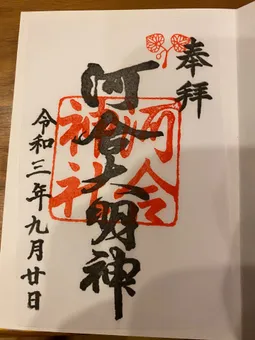 奉拝
河合大明神
河合
神社
令和三年九月廿日